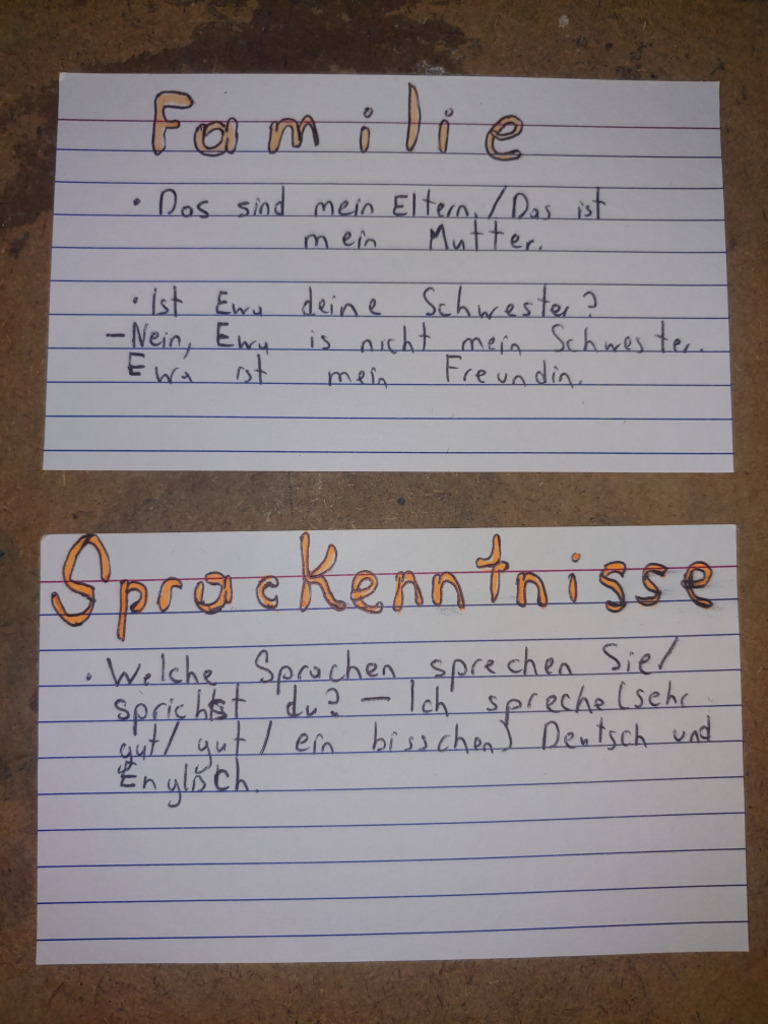 Familie
• Das sind mein Eltern. / Das ist
mein Mutter.
• Ist Ewa deine Schwester?
– Nein, Ewa is nicht mein Schwester.
Ewa ist mein Freundin.
Sprackenntnisse
• Welche Sprachen sprechen Sie/
sprichst du? – Ich spreche (sehr
gut/ gut / ein bisschen) Deutsch und
Englisch.